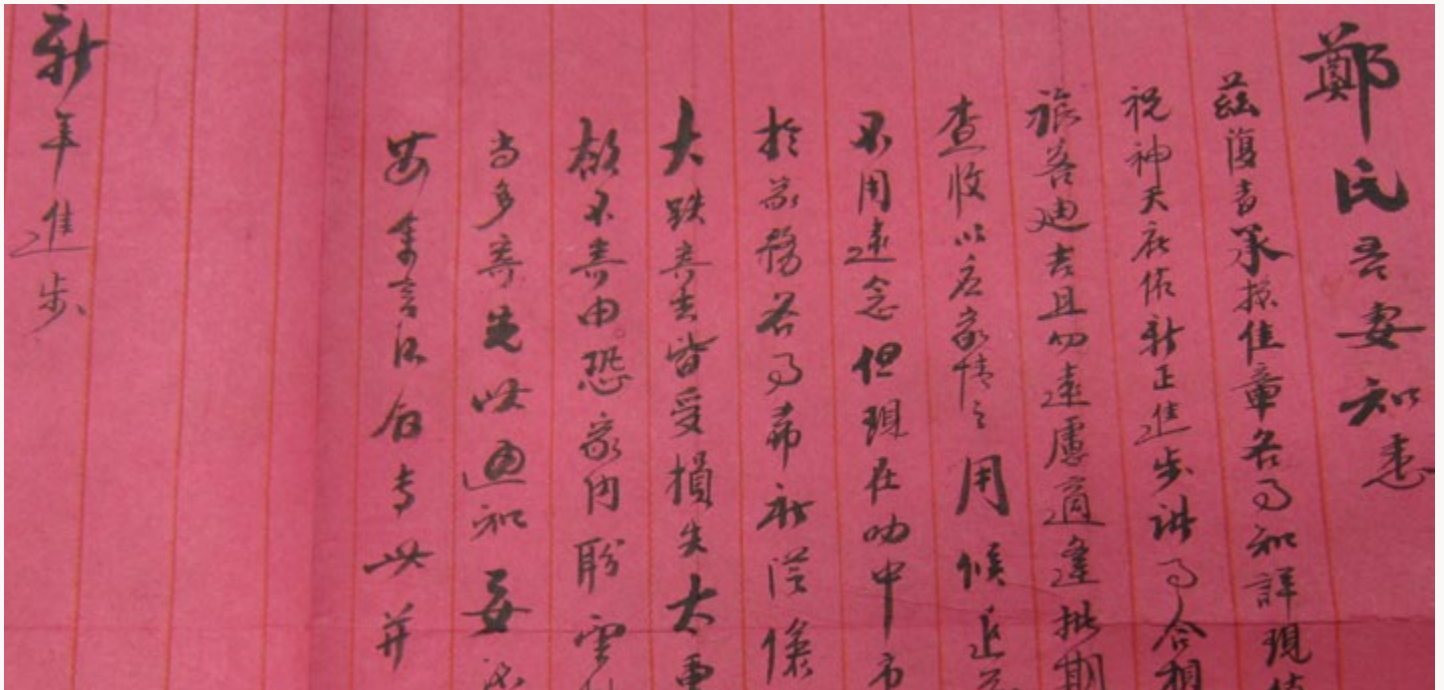 鄭氏吾妻知悉
茲復者承接佳章各事知詳現
祝神天庇佑新正進步諸事合相
旅客迪吉且勿遠慮適逢批期
查收以应家情之用候近
不用遠念但現在叻中市
於家務各事希祈從儉
大跌寄去皆受損失太重
故不寄由恐家內盼望
当多寄先此通知妥
安余言后敘专此并
新年進步